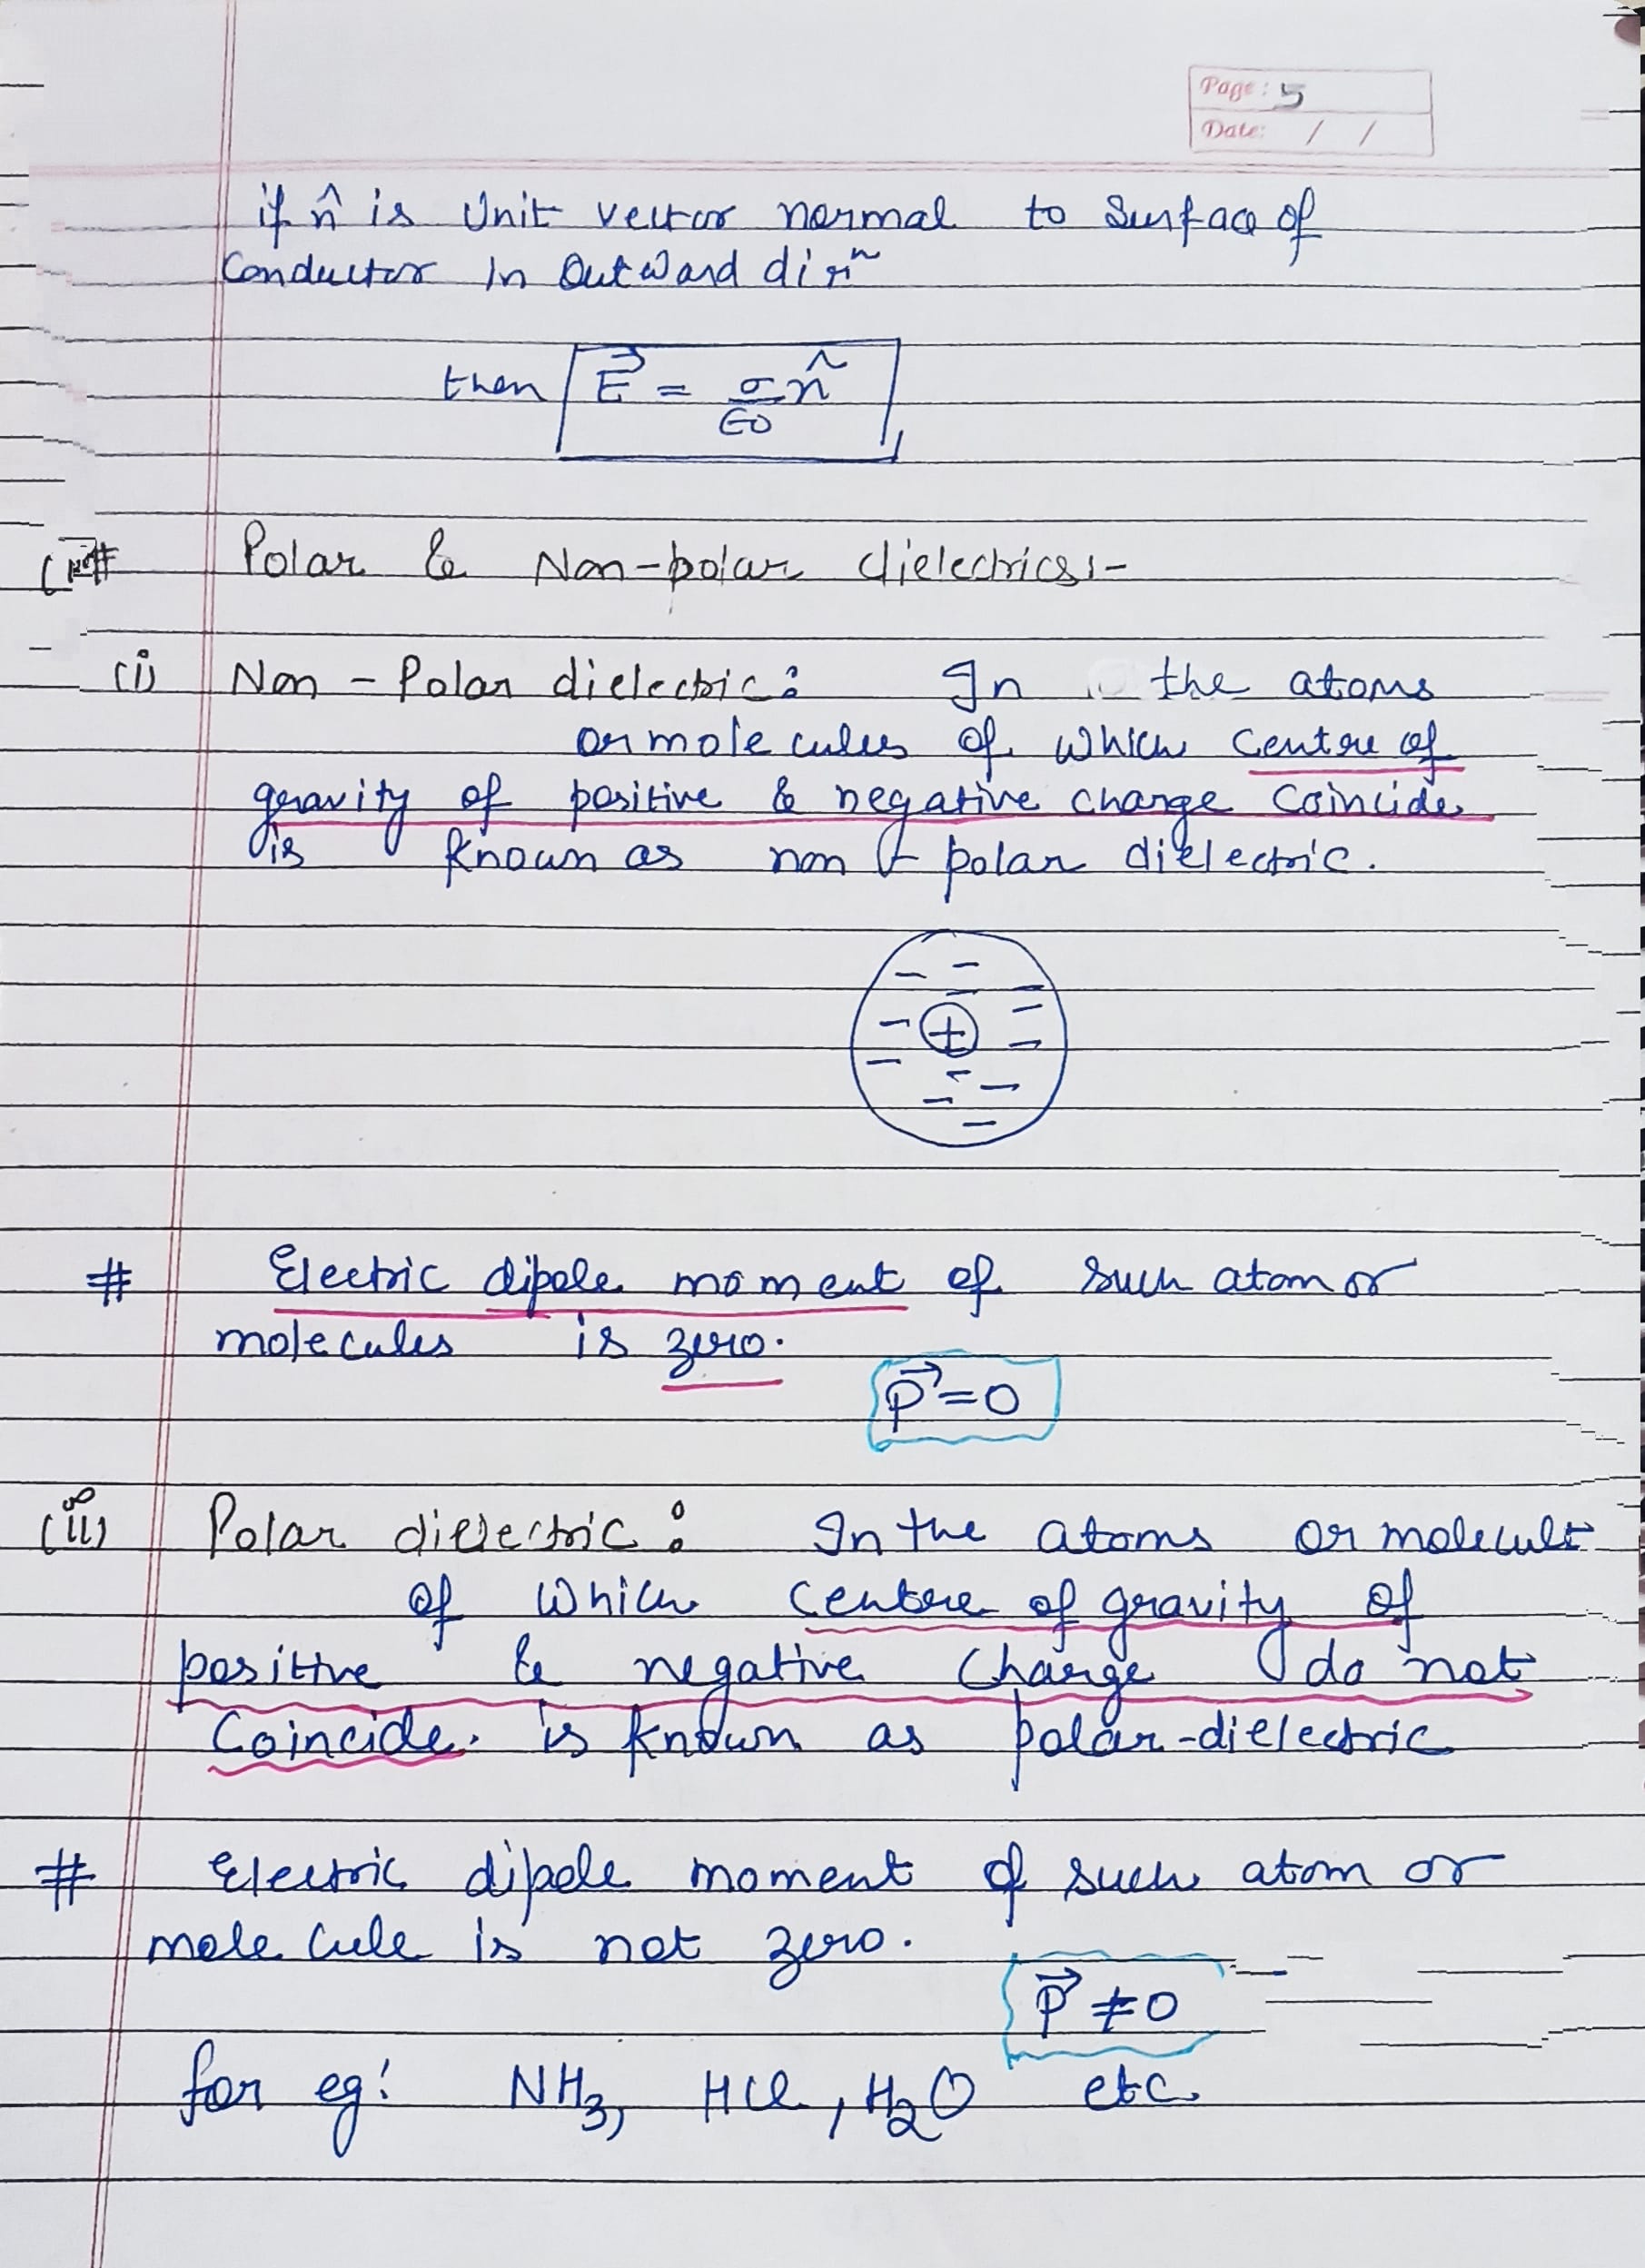 Page: 5
Date: / /
if n̂ is Unit vector normal to Surface of
Conductor In Outward dirⁿ
then E⃗ = σ/ε0 n̂
# Polar & Non-polar dielectrics:-
(i) Non-Polar dielectric: In the atoms
or molecules of which centre of
gravity of positive & negative charge coincide
is known as non - polar dielectric.
# Electric dipole moment of such atom or
molecules is zero.
P⃗ = 0
(ii) Polar dielectric: In the atoms or molecule
of which centre of gravity of
positive & negative charge do not
Coincide. is known as polar-dielectric
# Electric dipole moment of such atom or
molecule is not zero.
P⃗ ≠ 0
for eg: NH3, HCl, H2O etc.